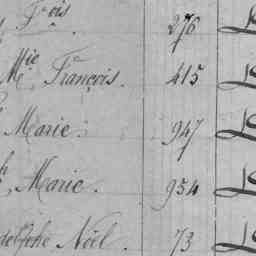 Frois 276
Mie François. 415
Marie. 947
h Marie. 954
delphe Noël. 73